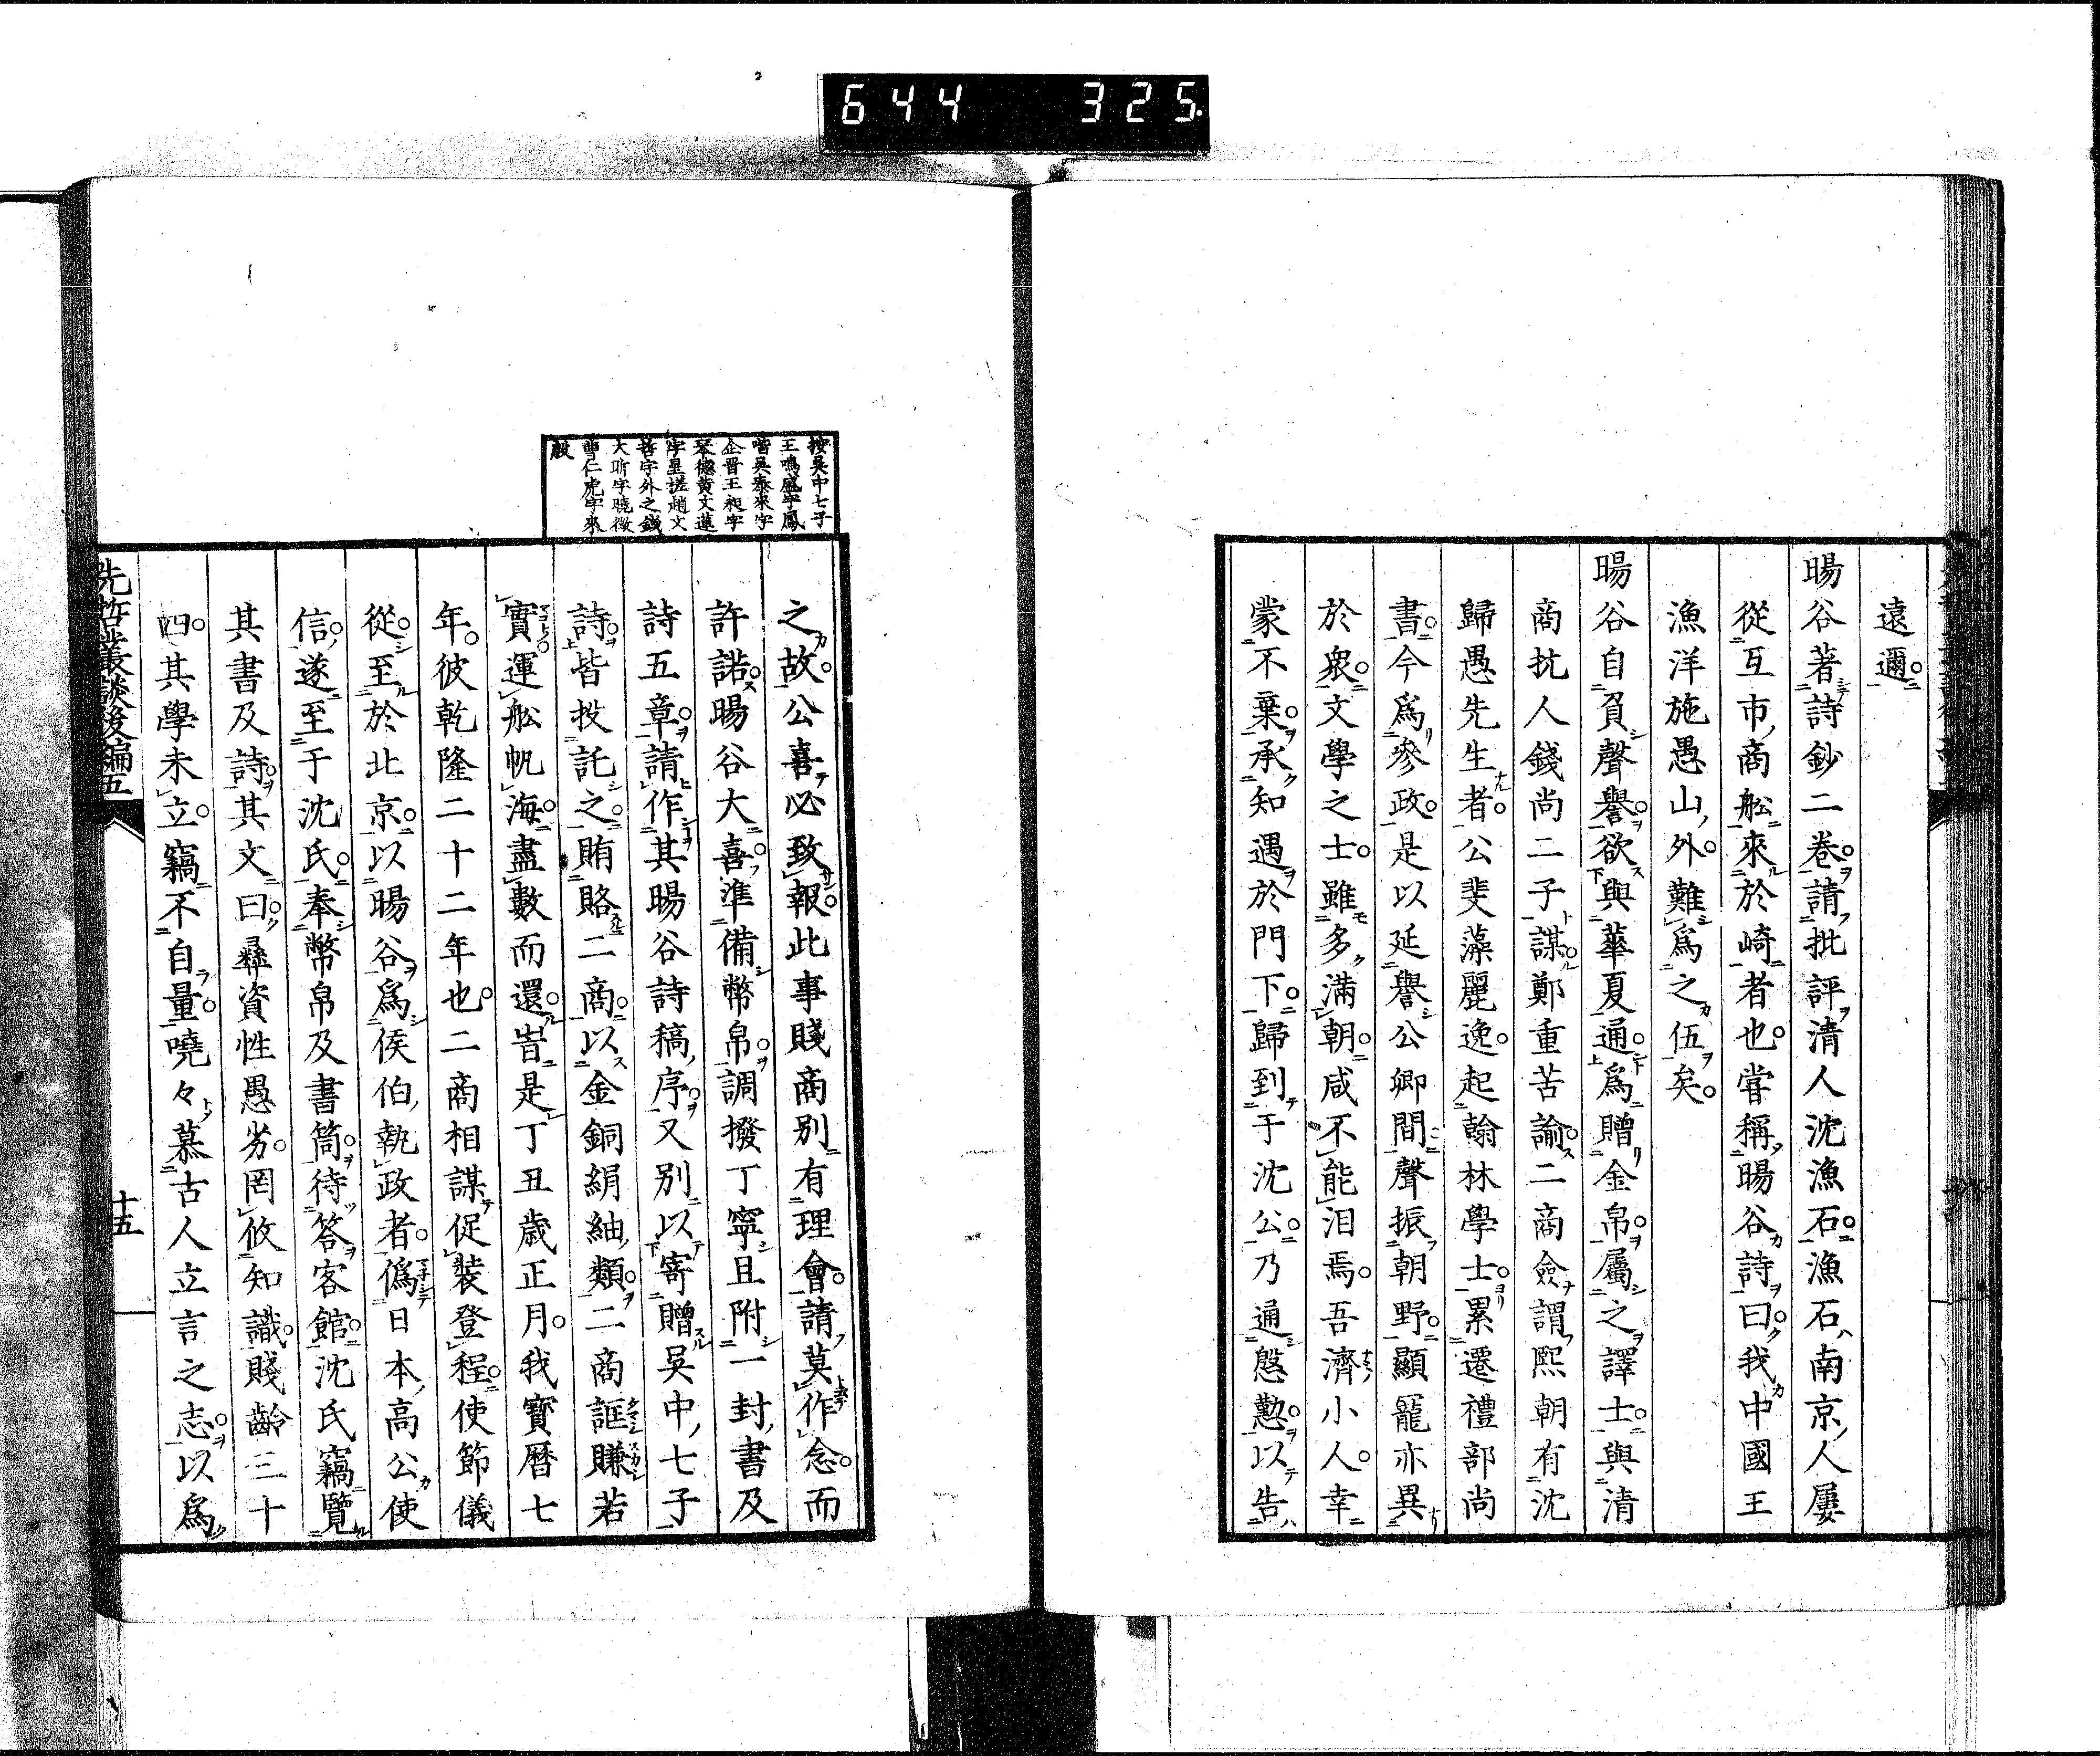 644 325
遠邇
暘谷著詩鈔二卷請批評清人沈漁石漁石南京人屢
從互市商舩來於崎者也甞稱暘谷詩曰我中國王
漁洋施愚山外難爲之伍矣
暘谷自負聲譽欲與華夏通爲贈金帛屬之譯士與清
商抗人錢尚二子謀鄭重苦諭二商僉謂熙朝有沈
歸愚先生者公斐藻麗逸起翰林學士累遷禮部尚
書今爲參政是以延譽公卿間聲振朝野顯寵亦異
於衆文學之士雖多滿朝咸不能泪焉吾濟小人幸
蒙不棄承知遇於門下歸到于沈公乃通慇懃以告
按吳中七子
王鳴盛字鳳
喈吳泰來字
企晋王昶字
琴德黄文蓮
字星槎趙文
哲字外之錢
大昕字曉徵
曹仁虎字來
殷
之故公喜必致報此事賤商別有理會請莫作念而
許諾暘谷大喜準備幣帛調撥丁寧且附一封書及
詩五章請作其暘谷詩稿序又別以寄贈吳中七子
詩皆投託之賄賂二商以金銅絹紬類二商誆賺若
實運舩帆海盡數而還旹是丁丑歲正月我寶曆七
年彼乾隆二十二年也二商相謀促裝登程使節儀
從至於北京以暘谷爲侯伯執政者僞日本高公使
信遂至于沈氏奉幣帛及書筒待答客館沈氏竊覽
其書及詩其文曰彝資性愚劣罔攸知識賤齡三十
四其學未立竊不自量嘵々慕古人立言之志以爲
先哲叢談後編五
十五